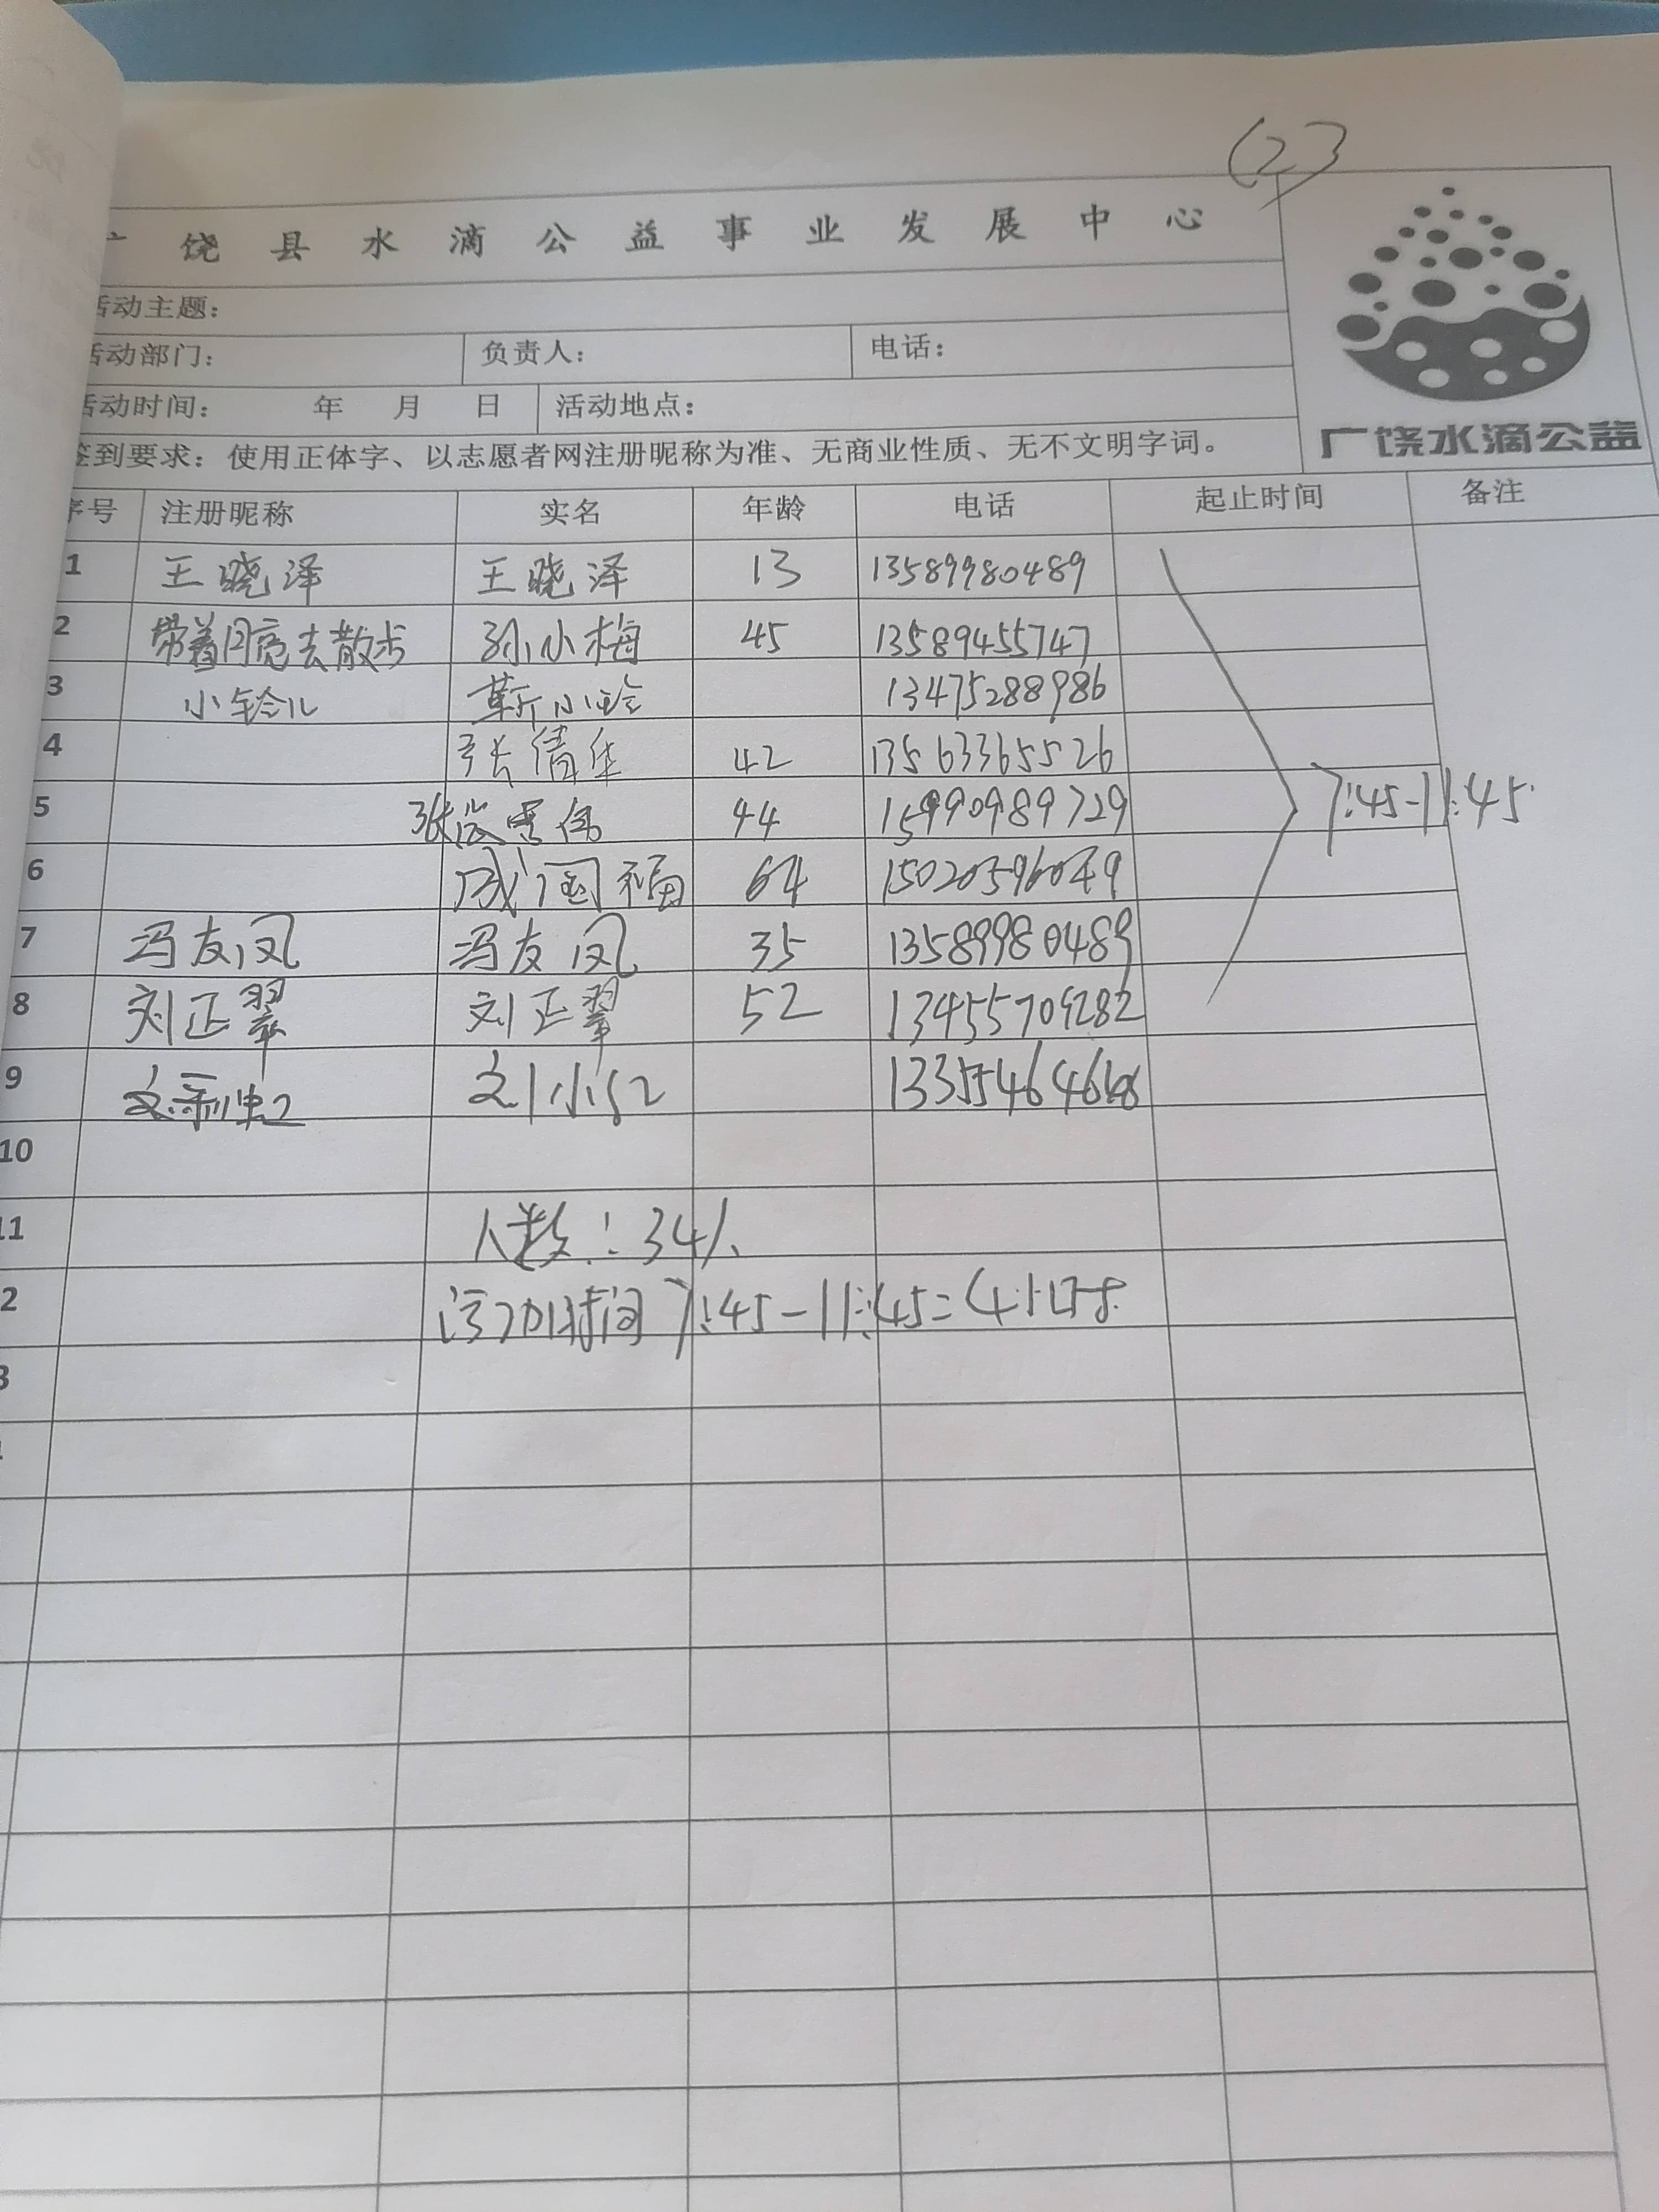 (2)
饶县水滴公益事业发展中心
活动主题：
活动部门： 负责人： 电话：
活动时间： 年 月 日 活动地点：
广饶水滴公益
签到要求：使用正体字、以志愿者网注册昵称为准、无商业性质、无不文明字词。
序号 注册昵称 实名 年龄 电话 起止时间 备注
1 王晓泽 王晓泽 13 13589980489
2 带着月亮去散步 孙小梅 45 13589455747
3 小铃儿 靳小玲 13475288986
4 张倩华 42 13563365526
5 张 伟 44 15990989729
7:45-11:45
6 成国福 64
7 冯友凤 冯友凤 35 13589980489
8 刘正翠 刘正翠 52 13455709282
9 刘小红
10
11 人数：34人
2 活动时间 7:45-11:45=(4小时
3